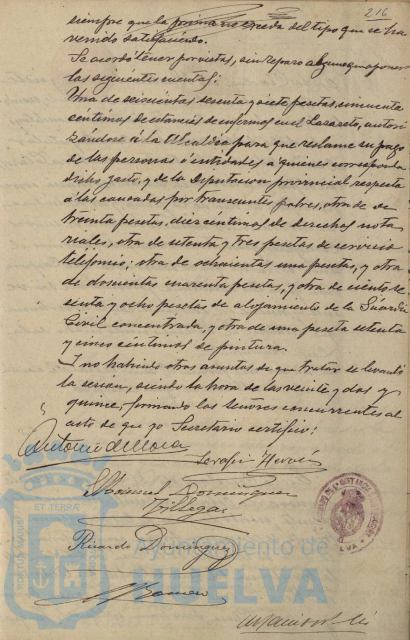 216
siempre que la prima no exceda del tipo que se ha
venido satisfaciendo.
Se acordó tener por vistas, sin reparo alguno que oponer
las siguientes cuentas:
Una de seiscientas sesenta y siete pesetas, cincuenta
céntimos de estancias de enfermos en el Lazareto, autori
zándose á la Alcaldía para que reclame su pago
de las personas ó entidades a quienes corresponda
dicho gasto, y de la Diputacion provincial respecto
á las causadas por transeuntes pobres, otra de
treinta pesetas, diez céntimos de derechos nota
riales, otra de setenta y tres pesetas de servicio
telefónico; otra de ochocientas una pesetas, y otra
de doscientas cuarenta pesetas, y otra de ciento se
senta y ocho pesetas de alojamiento de la Guardia
Civil concentrada, y otra de una peseta setenta
y cinco céntimos de pintura.
Y no habiendo otros asuntos de que tratar se levantó
la sesión, siendo la hora de las veinte y dos y
quince, firmando los Señores concurrentes al
acto de que yo Secretario certifico:
Antonio de Mora
Serafin
Manuel Dominguez
Villegas
Ricardo Dominguez
ET TERRÆ
PORTUS MARIS
Ayuntamiento de
HUELVA